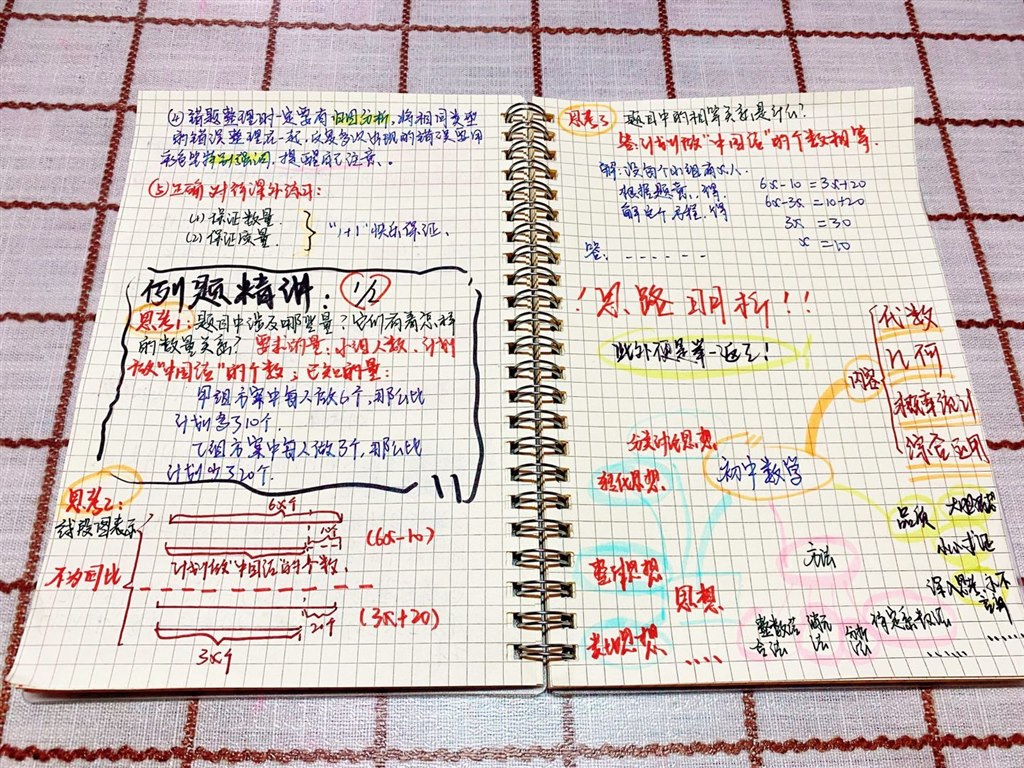 (4) 错题整理时一定要有归因分析，将相同类型
的错误整理在一起，反复多次出现的错误要用
特别强调，提醒自己注意。
(5) 正确对待课外练习：
(1) 保证数量
(2) 保证质量
"1+1"快乐保证。
例题精讲：1/2
思考1：题目中涉及哪些量？它们有着怎样
的数量关系？要求的量：小组人数，计划
做"中国结"的个数；已知的量：
甲组方案中每人做6个，那么比
计划多了10个．
乙组方案中每人做3个，那么比
计划少了20个．
思考2：
线段图表示
6x个
10个
(6x-10)
计划做"中国结"的个数．
不为同比
20个
(3x+20)
3x个
思考3
题目中的相等关系是什么？
答：计划做"中国结"的个数相等．
解：设每个小组有x人．
根据题意，得
6x-10=3x+20
解这个方程，得
6x-3x=10+20
3x=30
x=10
答：- - - - - -
！思路明析！！
此外便是举一返三！
代数
几何
概率统计
综合应用
内容
初中数学
分类讨论思想
转化思想
整体思想
类比思想
思想
....
方法
消元
法
待定系数法
......
品质
大胆
小心求证
深入思考
......